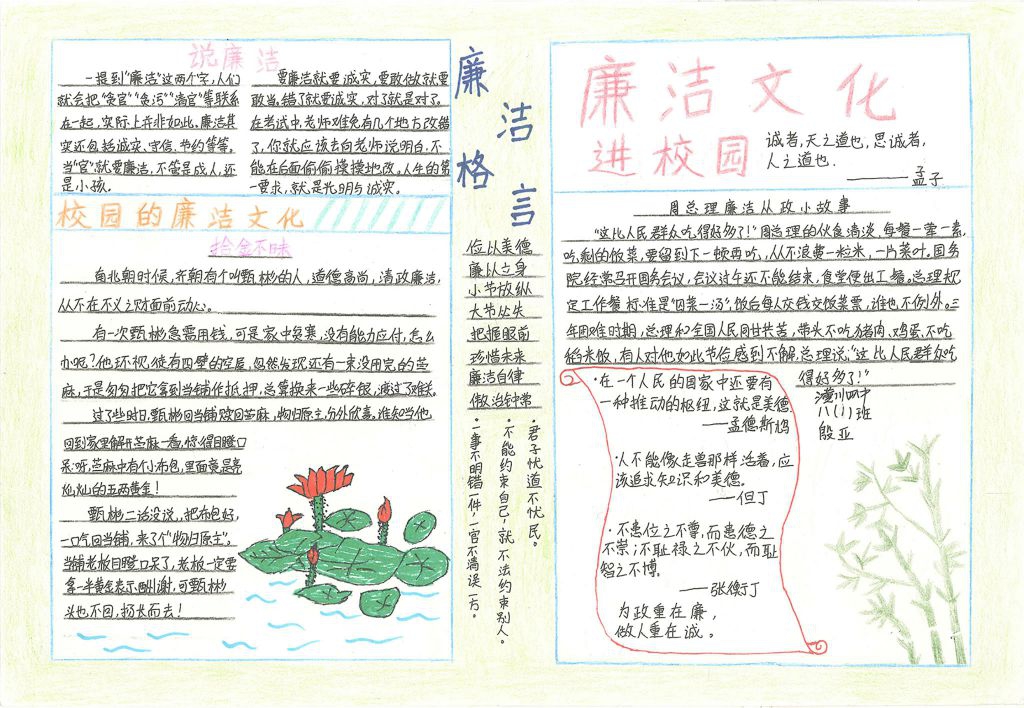 说廉洁
一提到"廉洁"这两个字,人们
就会把"贪官""贪污""清官"等联系
在一起,实际上并非如此,廉洁其
实还包括诚实、守信、节约等等。
当"官"就要廉洁,不管是成人,还
是小孩。
要廉洁就要诚实,要敢做就要
敢当。错了就要诚实,对了就是对了。
在考试中,老师难免有几个地方改错
了,你就应该去向老师说明白,不
能在后面偷偷摸摸地改。人生的第
一要求,就是光明与诚实。
校园的廉洁文化
拾金不昧
南北朝时候,齐朝有个叫甄彬的人,道德高尚,清政廉洁,
从不在不义之财面前动心。
有一次甄彬急需用钱,可是家中贫寒,没有能力应付,怎么
办呢?他环视徒有四壁的空居,忽然发现还有一束没用完的苎
麻,于是匆匆把它拿到当铺作抵押,总算换来一些碎银,渡过了难关。
过了些时日,甄彬回当铺赎回苎麻,物归原主,分外欣喜。谁知当他
回到家里解开苎麻一看,惊得目瞪口
呆:呀,苎麻中有个小布包,里面竟是亮
灿灿的五两黄金!
甄彬二话没说,把布包好,
一口气回当铺,来了个"物归原主"。
当铺老板目瞪口呆了,老板一定要
拿一半黄金表示酬谢,可甄彬
头也不回,扬长而去!
廉洁格言
俭以美德
廉以立身
小节放纵
大节丛失
把握眼前
珍惜未来
廉洁自律
做治钟常
·君子忧道不忧民。
·不能约束自己,就不法约束别人。
·一事不明错一件,一官不清误一方。
廉洁文化
进校园
诚者,天之道也,思诚者,
人之道也.
——孟子
周总理廉洁从政小故事
"这比人民群众吃得好多了!"周总理的伙食清淡,每餐一荤一素,
吃剩的饭菜,要留到下一顿再吃,从不浪费一粒米,一片菜叶。国务
院经常召开国务会议,会议过午还不能结束,食堂便出工餐。总理规
定工作餐标准是"四菜一汤",饭后每人交钱交饭菜票,谁也不例外。三
年困难时期,总理和全国人民同甘共苦,带头不吃猪肉、鸡蛋,不吃
稻米饭,有人对他如此节俭感到不解,总理说:"这比人民群众吃
得好多了!"
·在一个人民的国家中还要有
一种推动的枢纽,这就是美德.
——孟德斯鸠
·人不能像走兽那样活着,应
该追求知识和美德.
——但丁
·不患位之不尊,而患德之
不崇;不耻禄之不伙,而耻
智之不博.
——张衡
为政重在廉,
做人重在诚。
八(1)班
殷亚